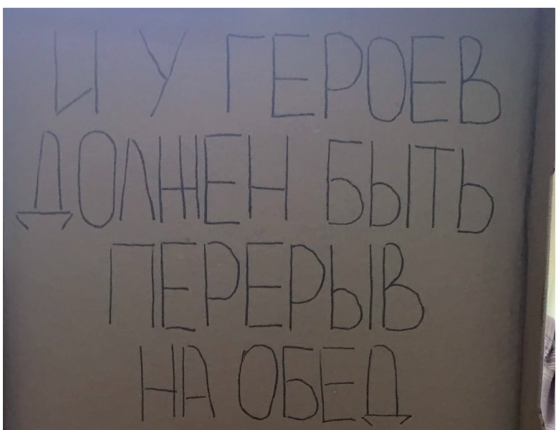 И У ГЕРОЕВ
ДОЛЖЕН БЫТЬ
ПЕРЕРЫВ
НА ОБЕД